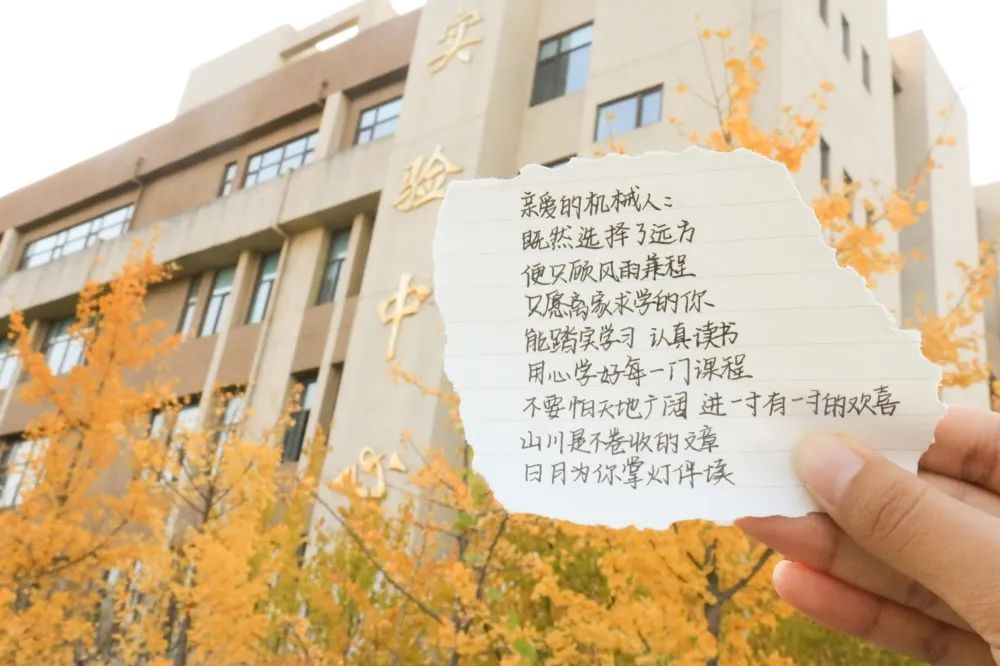 实验中心
亲爱的机械人：
既然选择了远方
便只顾风雨兼程
只愿离家求学的你
能踏实学习 认真读书
用心学好每一门课程
不要怕天地广阔 进一寸有一寸的欢喜
山川是不卷收的文章
日月为你掌灯伴读